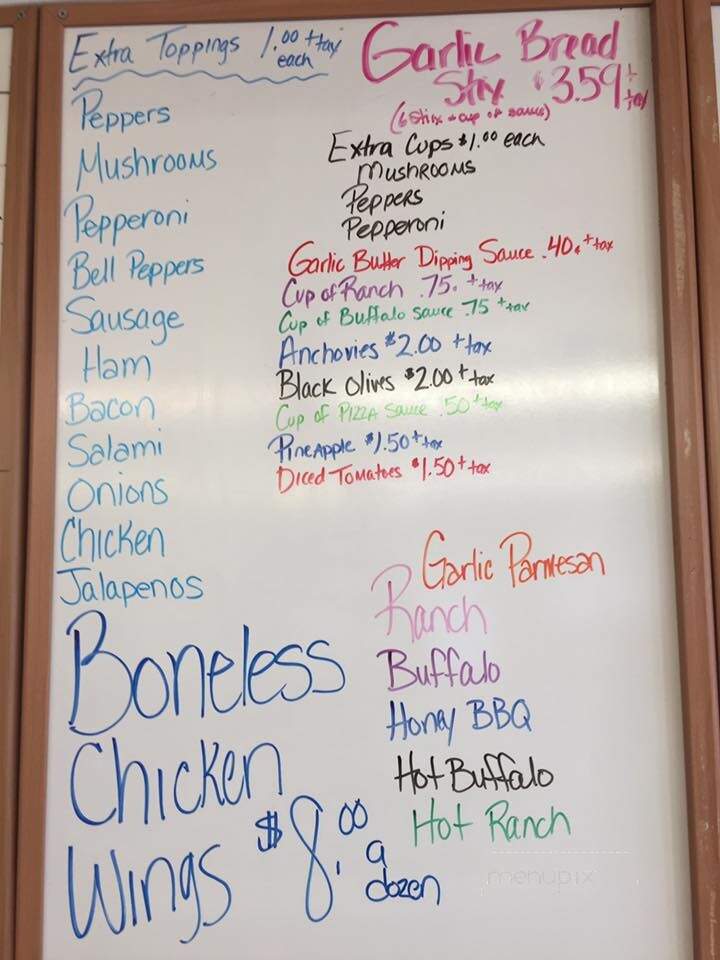 Extra Toppings 1.00 + tax
each
Peppers
Mushrooms
Pepperoni
Bell Peppers
Sausage
Ham
Bacon
Salami
Onions
Chicken
Jalapenos
Garlic Bread
Stix $3.59 + tax
(6 Stix + cup of sauce)
Extra Cups $1.00 each
Mushrooms
Peppers
Pepperoni
Garlic Butter Dipping Sauce .40 + tax
Cup of Ranch .75 + tax
Cup of Buffalo sauce .75 + tax
Anchovies $2.00 + tax
Black Olives $2.00 + tax
Cup of Pizza Sauce .50 + tax
Pineapple $1.50 + tax
Diced Tomatoes $1.50 + tax
Boneless
Chicken
Wings $8.00
a
dozen
Garlic Parmesan
Ranch
Buffalo
Honey BBQ
Hot Buffalo
Hot Ranch
menupix